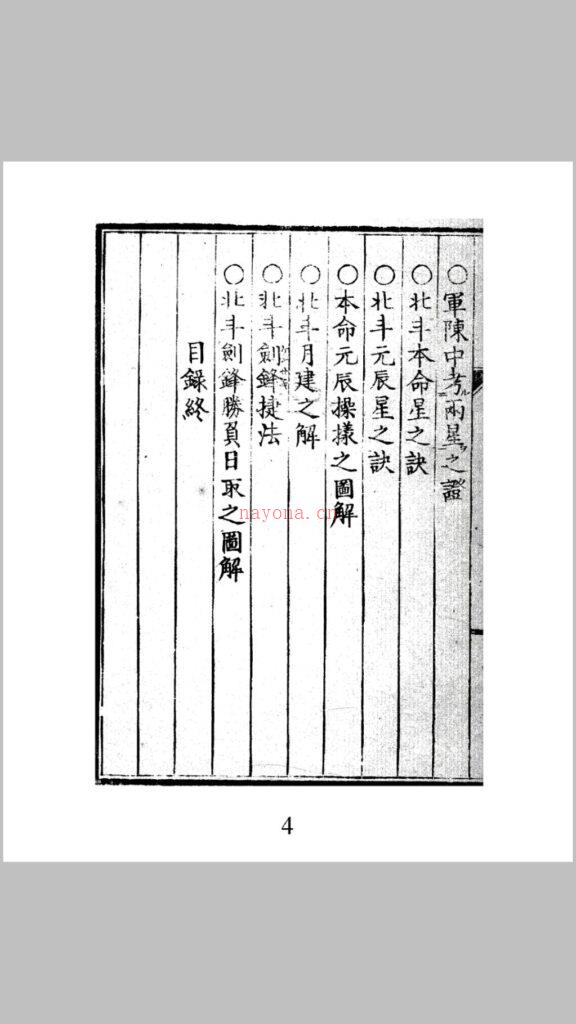 ○軍陳中考兩星之證
○北斗本命星之訣
○北斗元辰星之訣
○本命元辰操様之圖解
○北斗月建之解
○北斗劍鋒捷法
○北斗劍鋒勝負日取之圖解
目錄終
nayona.cn
4